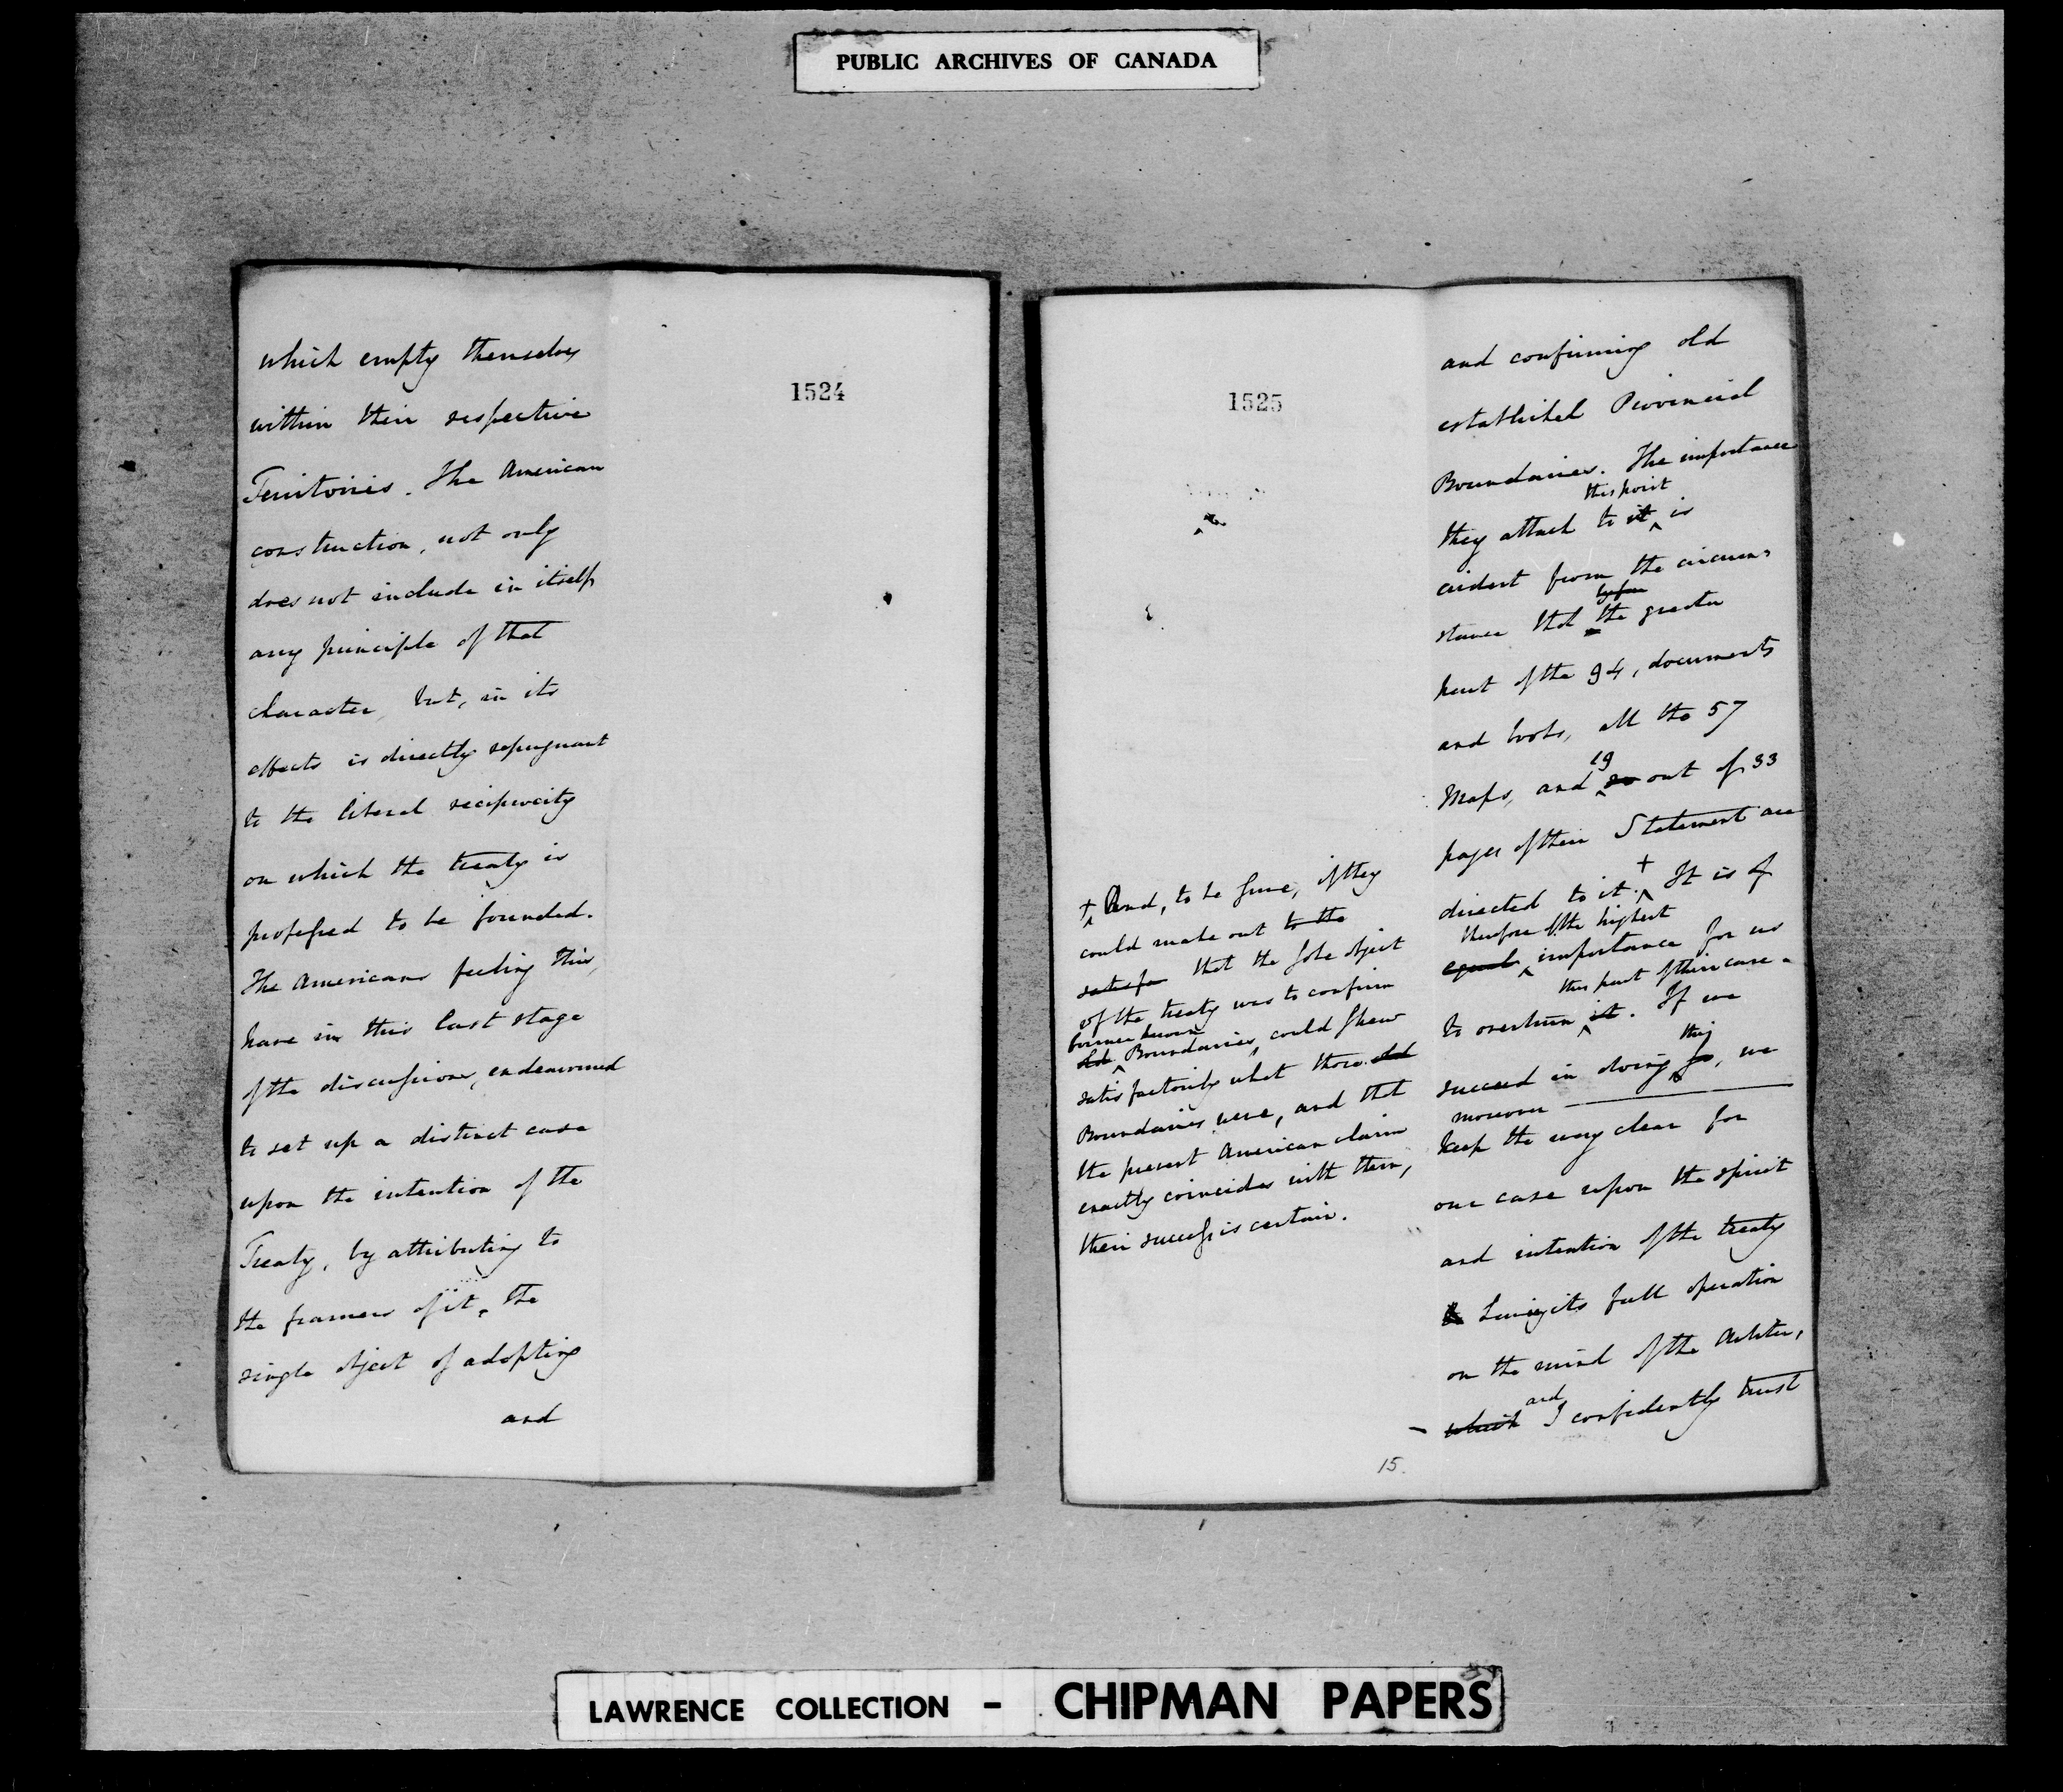 PUBLIC ARCHIVES OF CANADA
1524
which empty themselves
within their respective
Territories. The American
construction, not only
does not include in itself
any principle of that
character, but, in its
effects is directly repugnant
to the liberal reciprocity
on which the treaty is
professed to be founded.
The Americans feeling this,
have in this last stage
of the discussions, endeavoured
to set up a distinct case
upon the intention of the
Treaty, by attributing to
the framers of it, the
single object of adopting
and
1525
and confirming old
established Provincial
Boundaries. The importance
this point
they attach to it ^ is
evident from the circum-
by far
stance that the greater
part of the 94, documents
and books, all the 57
19
Maps, and ^ out of 33
pages of their Statement are
directed to it. +^ It is of
therefore of the highest
equal ^ importance for us
this part of their case -
to overturn it ^. If we
this
succeed in doing so, we
moreover
keep the way clear for
our case upon the spirit
and intention of the treaty
its full operation
on the mind of the Arbiter,
and
- which I confidently trust
+^ And, to be sure, if they
could make out to the
satisfn that the sole object
of the treaty was to confirm
former known
old ^ Boundaries, could shew
satisfactorily what those old
Boundaries were, and that
the present American claim
exactly coincides with them,
their success is certain.
15.
LAWRENCE COLLECTION - CHIPMAN PAPERS